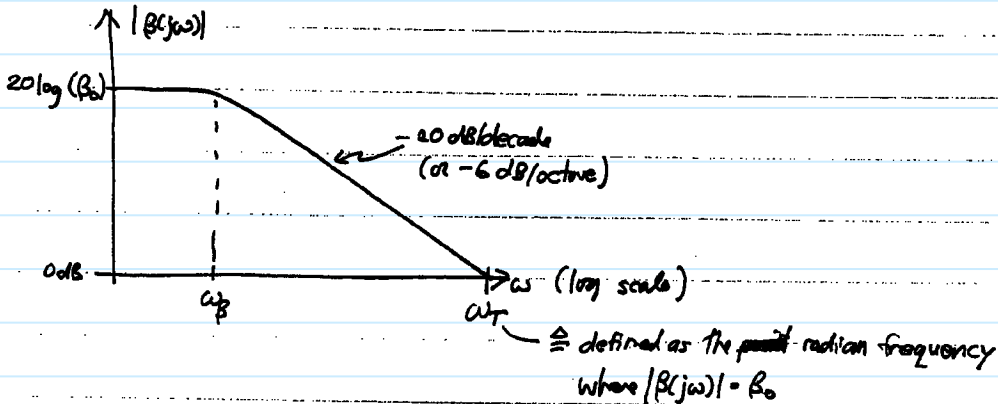 |β(jω)|
20 log (β₀)
- 20 dB/decade
(or -6 dB/octave)
0dB
ω (log scale)
ω_β
ω_T
≜ defined as the radian frequency
where |β(jω)| = β₀